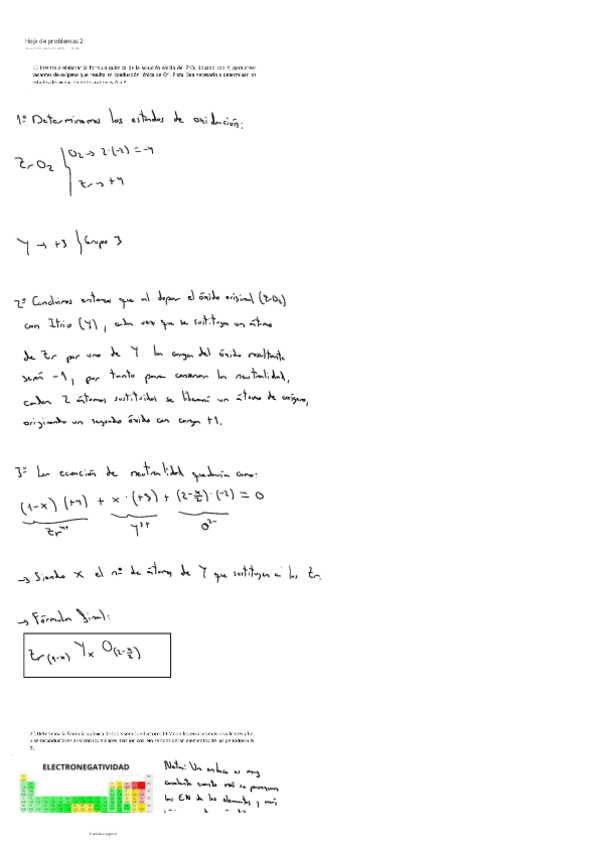 Hoja de problemas 2
1.) Intenta elaborar la fórmula química de la solución sólida de ZrO₂ dopado con Y, para crear
vacantes de oxígeno que resulta en conducción iónica de O²⁻. Pista: Será necesario determinar los
1º Determinamos los estados de oxidación:
ZrO₂ { O₂ → 2·(-2) = -4
Zr → +4
Y → +3 } Grupo 3
2º Conocimos entonces que al dopar el óxido original (ZrO₂)
con Itrio (Y), cada vez que se sustituya un átomo
de Zr por uno de Y la carga del óxido resultante
será -1, por tanto para conservar la neutralidad,
cada 2 átomos sustituidos se liberará un átomo de oxígeno,
originando un segundo óxido con carga +1.
3º La ecuación de neutralidad quedaría como:
(1-x)(+4) + x·(+3) + (2-x/2)·(-2) = 0
Zr⁴⁺ Y³⁺ O²⁻
→ Siendo x el nº de átomos de Y que sustituyen a los Zr.
→ Fórmula final:
Zr(1-x) Yx O(2-x/2)
2.) Determina la fórmula química de los semiconductores III-V con los enlaces más covalentes y los
7.
ELECTRONEGATIVIDAD
Nota: Un enlace es muy
covalente cuanto más se parezcan
las EN de los elementos y más